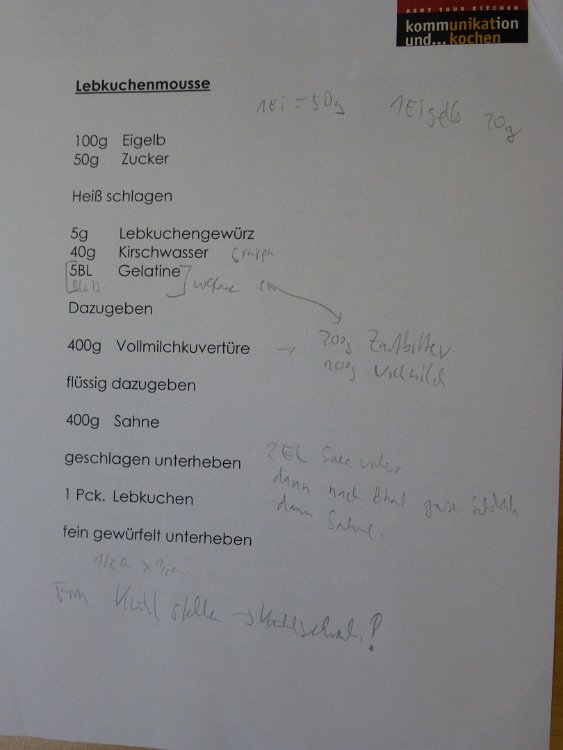 RENT YOUR KITCHEN
kommunikation
und... kochen
Lebkuchenmousse
1Ei = 50g 1Eigelb 20g
100g Eigelb
50g Zucker
Heiß schlagen
5g Lebkuchengewürz
40g Kirschwasser Grappa
5BL Gelatine
Blatt
Dazugeben
400g Vollmilchkuvertüre → 200g Zartbitter
200g Vollmilch
flüssig dazugeben
400g Sahne
geschlagen unterheben
2EL
dann nach
dann Sahne.
1 Pck. Lebkuchen
fein gewürfelt unterheben
1/2 x 1/2
Kühl stellen → Kühlschrank!